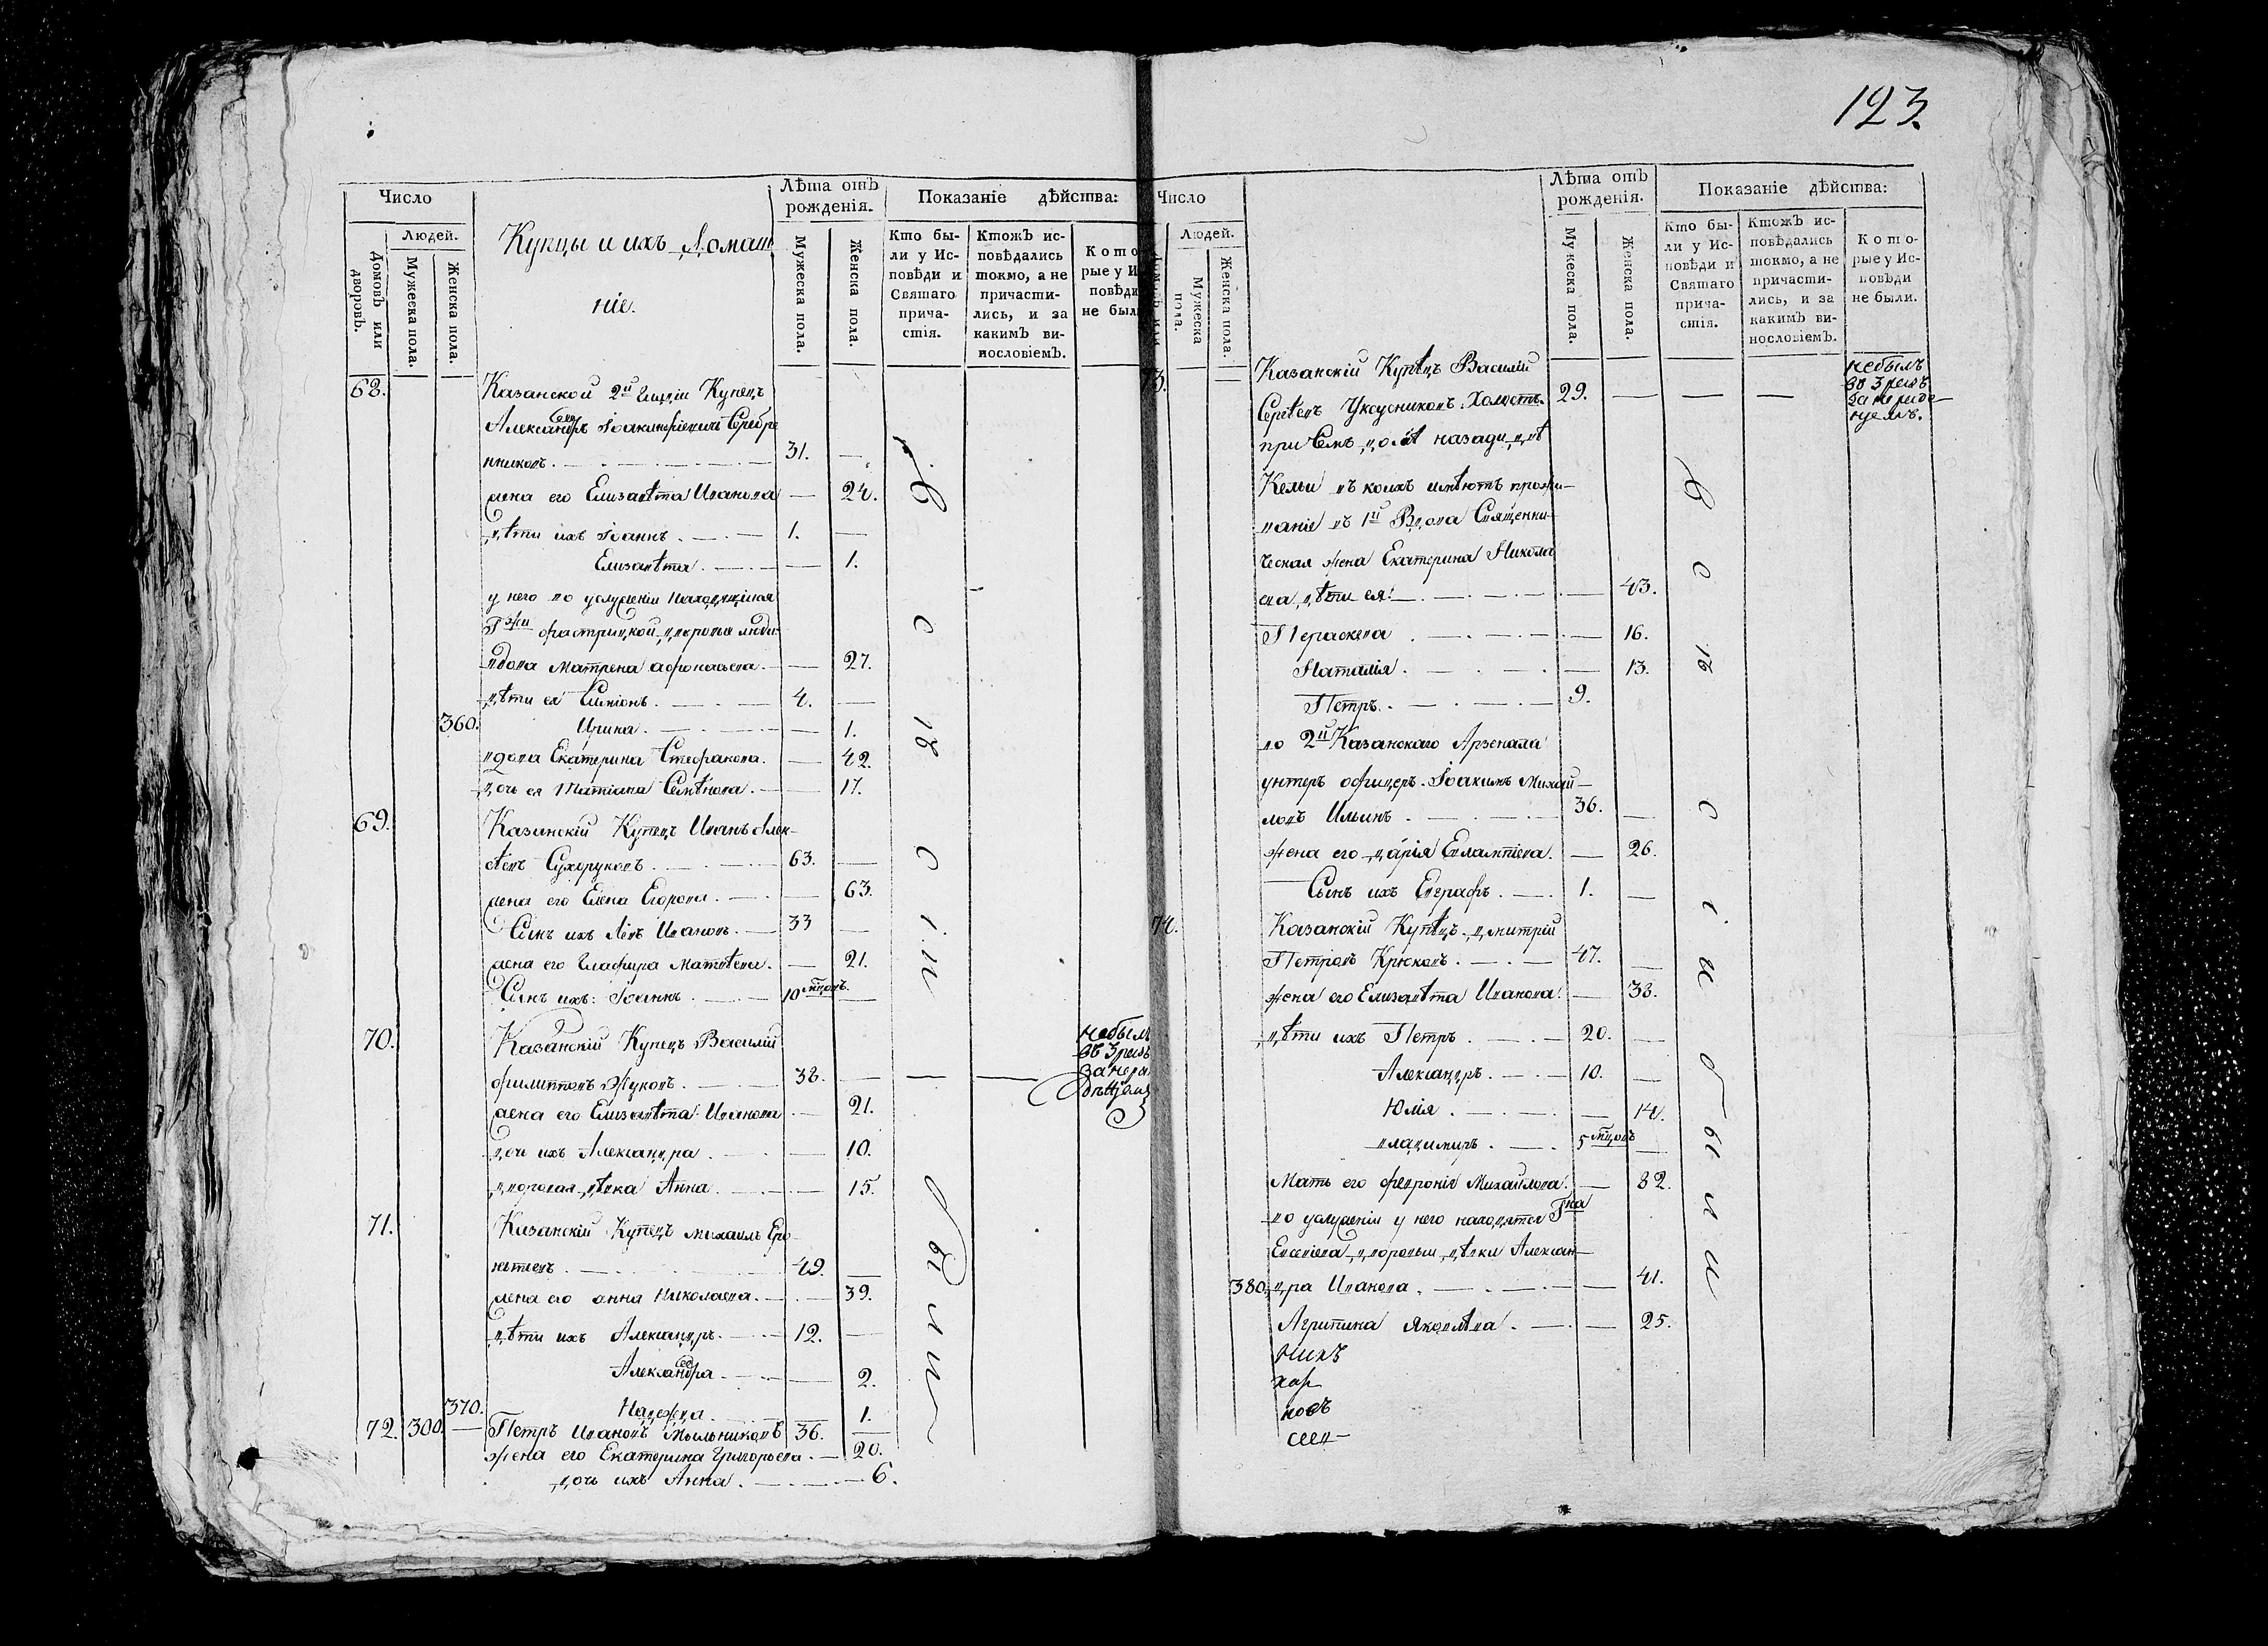 123.
Число
Людей.
Домовъ или дворовъ.
Мужеска пола.
Женска пола.
Купцы и ихъ Домаш
ніе.
Лѣта отъ рожденія.
Мужеска пола.
Женска пола.
Показаніе дѣйства:
Кто бы-
ли у Ис-
повѣди и
Святаго
прича-
стія.
Ктожъ ис-
повѣдались
токмо, а не
причасти-
лись, и за
какимъ ви-
нословіемъ.
Кото
рые у И
повѣди
не был
68.
Казанской 2й Гилдіи Купецъ
Александръ Іоакинфіевичь Серебре
нниковъ. 31.
жена его Елизавѣта Иванова 24.
дѣти ихъ Іоаннъ. 1.
Елизавѣта. 1.
у него по услуженіи находящіяся
дворовые люди
вдова Матрена Афонасьева. 27.
дѣти ея Симіонъ. 4.
360. Ирина. 1.
вдова Екатерина Стефанова. 42.
дочь ея Татіана Семѣнова. 17.
69. Казанскій Купецъ Иванъ Алек-
сѣевъ Сухоруковъ. 63.
жена его Елена Егорова. 63.
Сынъ ихъ Левъ Ивановъ. 33
жена его Глафира Матвѣева. 21.
Сынъ ихъ: Іоаннъ. 10 мцовъ.
70. Казанскій Купецъ Василій
Филипповъ Жуковъ. 38.
небылъ
жена его Елизавѣта Иванова 21.
дочь ихъ Александра. 10.
дворовая дѣвка Анна. 15.
71. Казанскій Купецъ Михаилъ Ере-
мѣевъ. 49.
жена его Анна Николаева. 39.
дѣти ихъ Александръ. 12.
Александра. 2.
370. Надежда. 1.
72. 300. Петръ Ивановъ Мыльниковъ 36.
жена его Екатерина Григорьева. 20.
дочь ихъ Анна. 6.
Число
Людей.
Мужеска пола.
Женска пола.
Лѣта отъ рожденія.
Мужеска пола.
Женска пола.
Показаніе дѣйства:
Кто бы-
ли у Ис-
повѣди и
Святаго
прича-
стія.
Ктожъ ис-
повѣдались
токмо, а не
причасти-
лись, и за
какимъ ви-
нословіемъ.
Кото-
рые у Ис-
повѣди
не были.
73. Казанскій Купѣцъ Василій
Сергѣевъ Уксусниковъ. Холостъ. 29.
небылъ
при Семъ домѣ назади двѣ
Кельи въ коихъ имѣютъ прожи-
ваніе въ 1й Вдова Священни-
ческая жена Екатерина Никола
ева дѣти ея: 43.
Параскева. 16.
Наталія. 13.
Петръ. 9.
во 2й Казанскаго Арзенала
унтеръ офицеръ. Іоакимъ Михай-
ловъ Ильинъ. 36.
жена его Дарія Евлампіева. 26.
Сынъ ихъ Евграфъ. 1.
74. Казанскій Купѣцъ Дмитрій
Петровъ Крюковъ. 47.
жена его Елизавѣта Иванова. 38.
дѣти ихъ Петръ. 20.
Александръ. 10.
Юлія. 14.
Владимиръ. 5 мцовъ
Мать его Февронія Михайлова. 82.
во услуженіи у него находятся Гжа
Евсевіева дворовыи дѣвки Алексан-
380. дра Иванова. 41.
Агрипина Яковлѣва. 25.